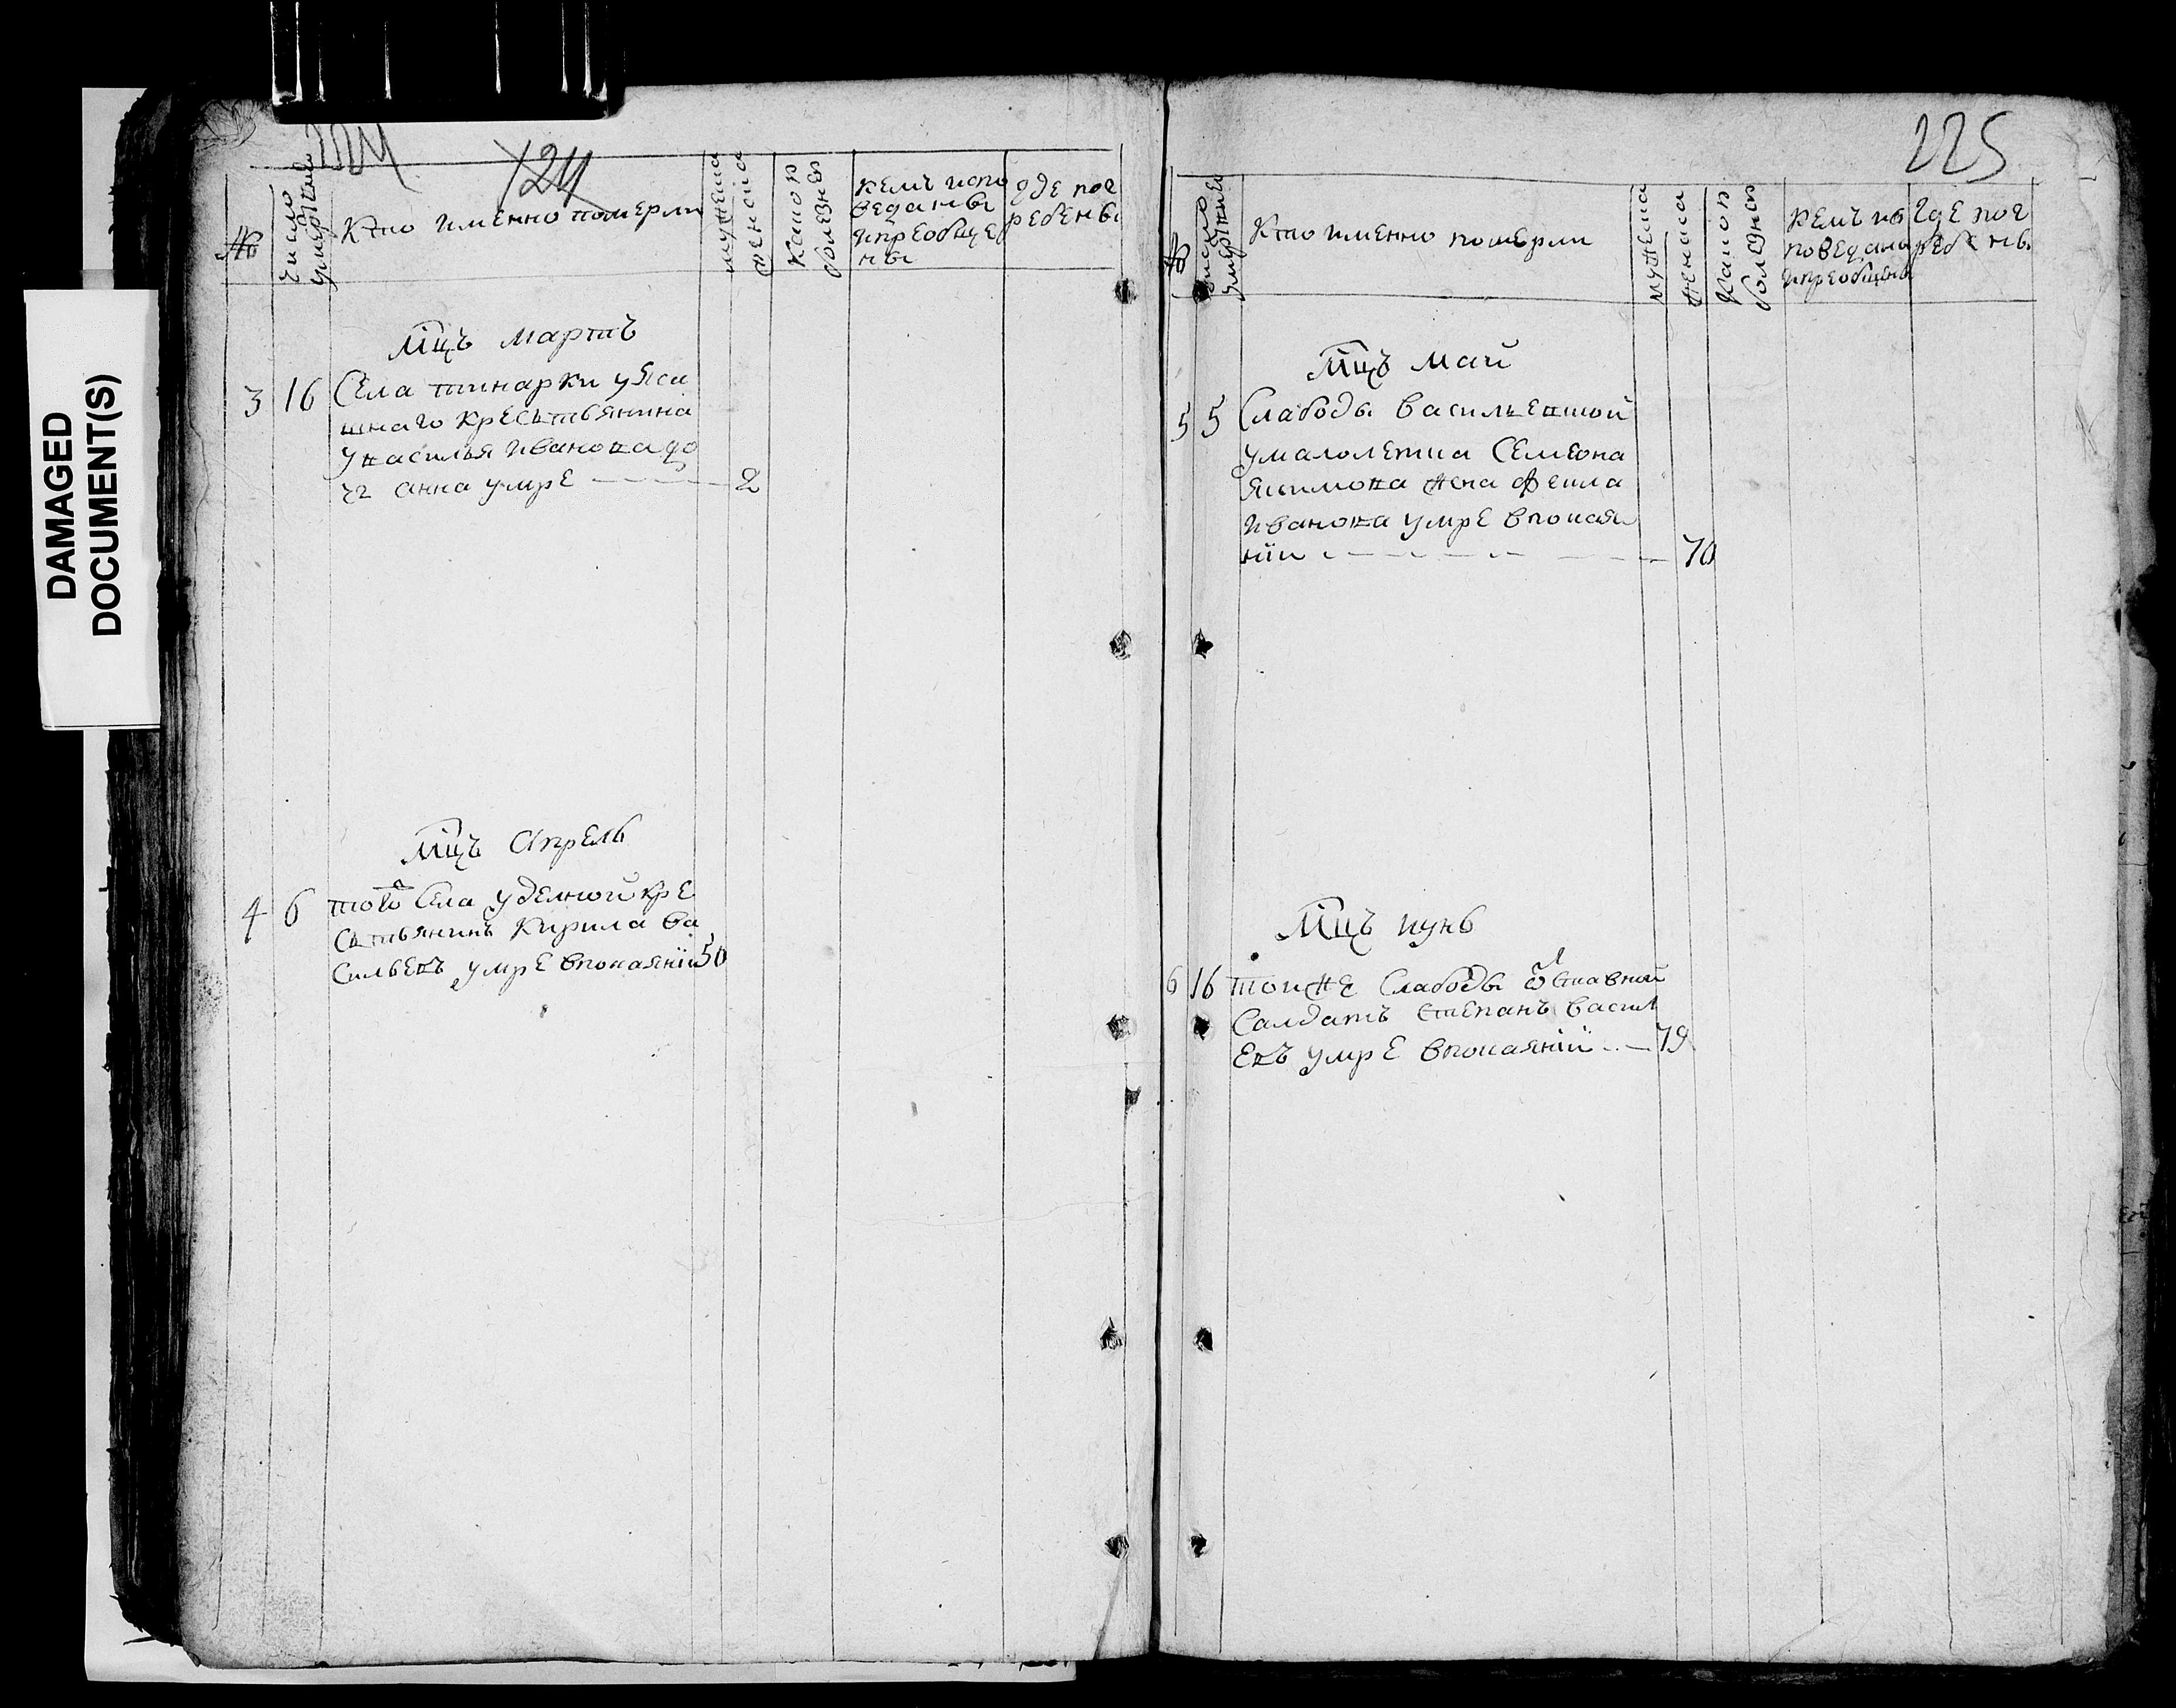 DAMAGED
DOCUMENT(S)
224
124
№
Число умертвия
Кто именно померли
мужеска
женска
Какою болезнею
кемъ испо
веданы
и преобще
ны
Где пог
ребены
Мцъ мартъ
3 16 Села тинарки у Яса
шнаго кресьтьянина
у василья иванова до
чь анна умре 2
Мцъ Апрель
4 6 того Села уделной кре
сьтьянинъ Кирила ва
сильевъ умре впокаянїи 50
225
№
число умертвия
Кто именно померли
мужеска
женска
Какою болезнею
кемъ ис
поведаны
и преобщены
Где пог
ребены
Мцъ май
5 5 Слабоды васильевкой
умалолетка Семеона
Якимова жена Фекла
иванова умре впокая
нїи 70
Мцъ иунь
6 16 тойже Слабоды ѿставной
Салдатъ Степанъ васил
евъ умре впокаянїи 79